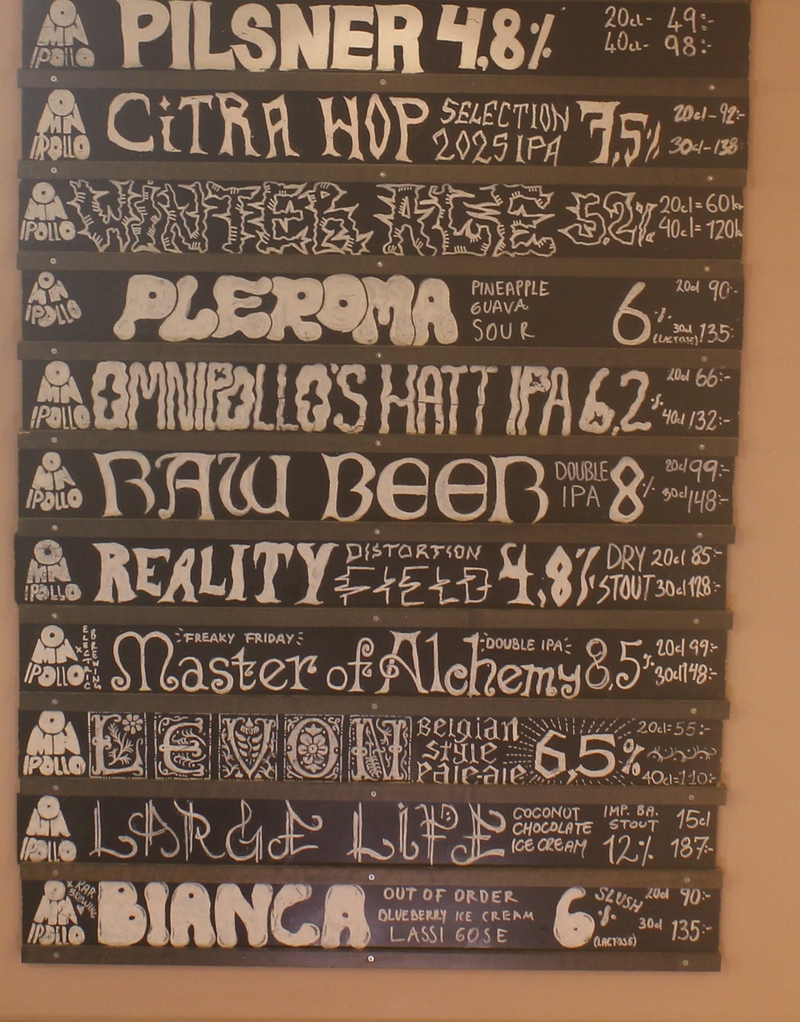 OMNIPOLLO PILSNER 4,8% 20cl- 49:-
40cl- 98:-
OMNIPOLLO CiTRA HOP SELECTION 2025 IPA 7,5% 20cl-92:-
30cl-138:-
OMNIPOLLO WINTER ALE 5,2% 20cl=60kr
40cl=120kr
OMNIPOLLO PLEROMA PINEAPPLE GUAVA SOUR 6% (LACTOSE) 20cl 90:-
30cl 135:-
OMNIPOLLO OMNIPOLLO'S HATT IPA 6,2% 20cl 66:-
40cl 132:-
OMNIPOLLO RAW BEER DOUBLE IPA 8% 20cl 99:-
30cl 148:-
OMNIPOLLO REALITY DISTORTION FIELD 4,8% DRY STOUT 20cl 85:-
30cl 128:-
OMNIPOLLO x ELECTRIC BREWING FREAKY FRIDAY: Master of Alchemy DOUBLE IPA 8,5% 20cl 99:-
30cl 148:-
OMNIPOLLO LEVON Belgian style Pale ale 6,5% 20cl=55:-
40cl=110:-
OMNIPOLLO LARGE LIFE COCONUT CHOCOLATE ICE CREAM IMP. BA. STOUT 12% 15cl
187:-
OMNIPOLLO x KAR BREWING BIANCA OUT OF ORDER BLUEBERRY ICE CREAM LASSI GOSE 6% (LACTOSE) SLUSH 20cl 90:-
30cl 135:-